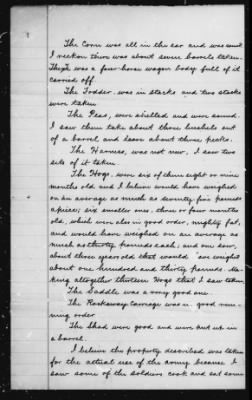 The Corn was all in the ear and was und
I reckon there was about seven barrels taken.
They was a four-horse wagon body full of it
carried off.
The Fodder was in stacks and two stacks
were taken
The Peas, were shelled and were sound.
I saw them take about three bushels out
of a barrel and leave about three pecks.
The Harness, was not new, I saw two
sets of it taken
The Hogs, were six of them eight or nine
months old and I believe would have weighed
on an average as much as seventy five pounds
apiece; six smaller ones, three or four months
old, which were also in good order, mighty fat,
and would have weighed on an average as
much as thirty pounds each; and one sow,
about three years old that would have weighed
about one hundred and thirty pounds. Ma-
king altogether thirteen Hogs that I saw taken
The Saddle was a very good one
The Rockaway Carriage was in good run-
ning order
The Shad were good and were put up in
a barrel.
I believe the property described was taken
for the actual use of the army because I
saw some of the soldiers cook and eat some